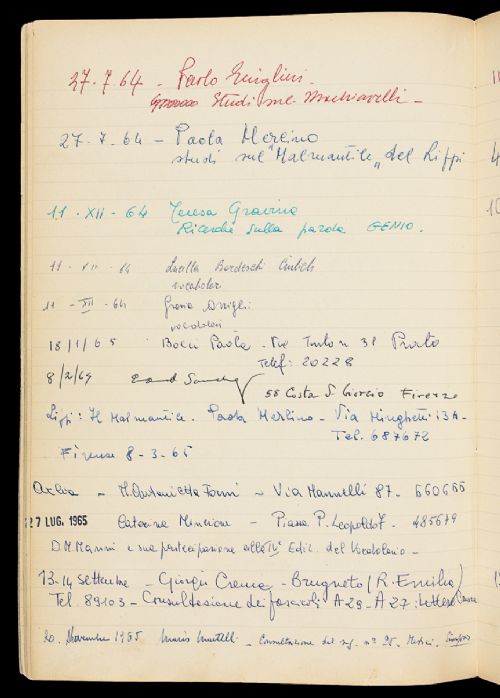 27.7.64 - Paolo
Studi sul Machiavelli -
27.7.64 - Paola Merlino
studi sul "Malmantile" del Lippi
11 - XII - 64 Teresa Gravina
Ricerche sulla parola GENIO.
11 - XII - 64 Lucilla Bardeschi
vocabolari
11 - XII - 64 Grana
vocabolari
18/1/65 Bocci Paola - Via 38 Prato
Telef: 20228
8/2/65
58 Costa S. Giorgio Firenze
Lippi: Il Malmantile. Paola Merlino - Via Minghetti 13A -
Tel. 687672
Firenze 8-3-65
M. Antonietta - Via Mannelli 87 - 660666
27 LUG. 1965 Caterina - Piazza P. Leopoldo 7. 485679
D.M. Manni e sua partecipazione alla IVª Ediz. del Vocabolario -
13-14 settembre - Giorgio - (R. Emilia)
Tel. 89103 - Consultazione dei fascicoli A 29 - A 27: Lettere
20. Novembre 1965 Mario Martelli - Consultazione del ms. nº 25.